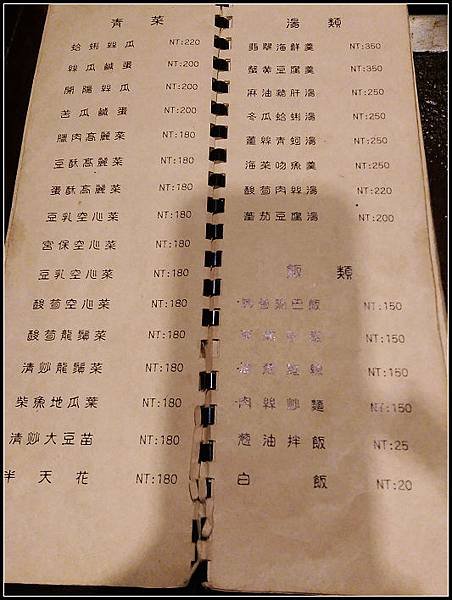 青菜
蛤蜊絲瓜 NT:220
絲瓜鹹蛋 NT:200
開陽絲瓜 NT:200
苦瓜鹹蛋 NT:200
臘肉高麗菜 NT:180
豆酥高麗菜 NT:180
蛋酥高麗菜 NT:180
豆乳空心菜 NT:180
宮保空心菜 NT:180
豆乳空心菜 NT:180
酸筍空心菜 NT:180
酸筍龍鬚菜 NT:180
清炒龍鬚菜 NT:180
柴魚地瓜葉 NT:180
清炒大豆苗 NT:180
半天花 NT:180
湯類
翡翠海鮮羹 NT:350
蟹黃豆腐羹 NT:350
麻油雞肝湯 NT:250
冬瓜蛤蜊湯 NT:250
薑絲青蚵湯 NT:250
海菜吻魚羹 NT:250
酸筍肉絲湯 NT:220
蕃茄豆腐湯 NT:200
飯類
NT:150
NT:150
NT:150
肉絲炒麵 NT:150
蔥油拌飯 NT:25
白飯 NT:20